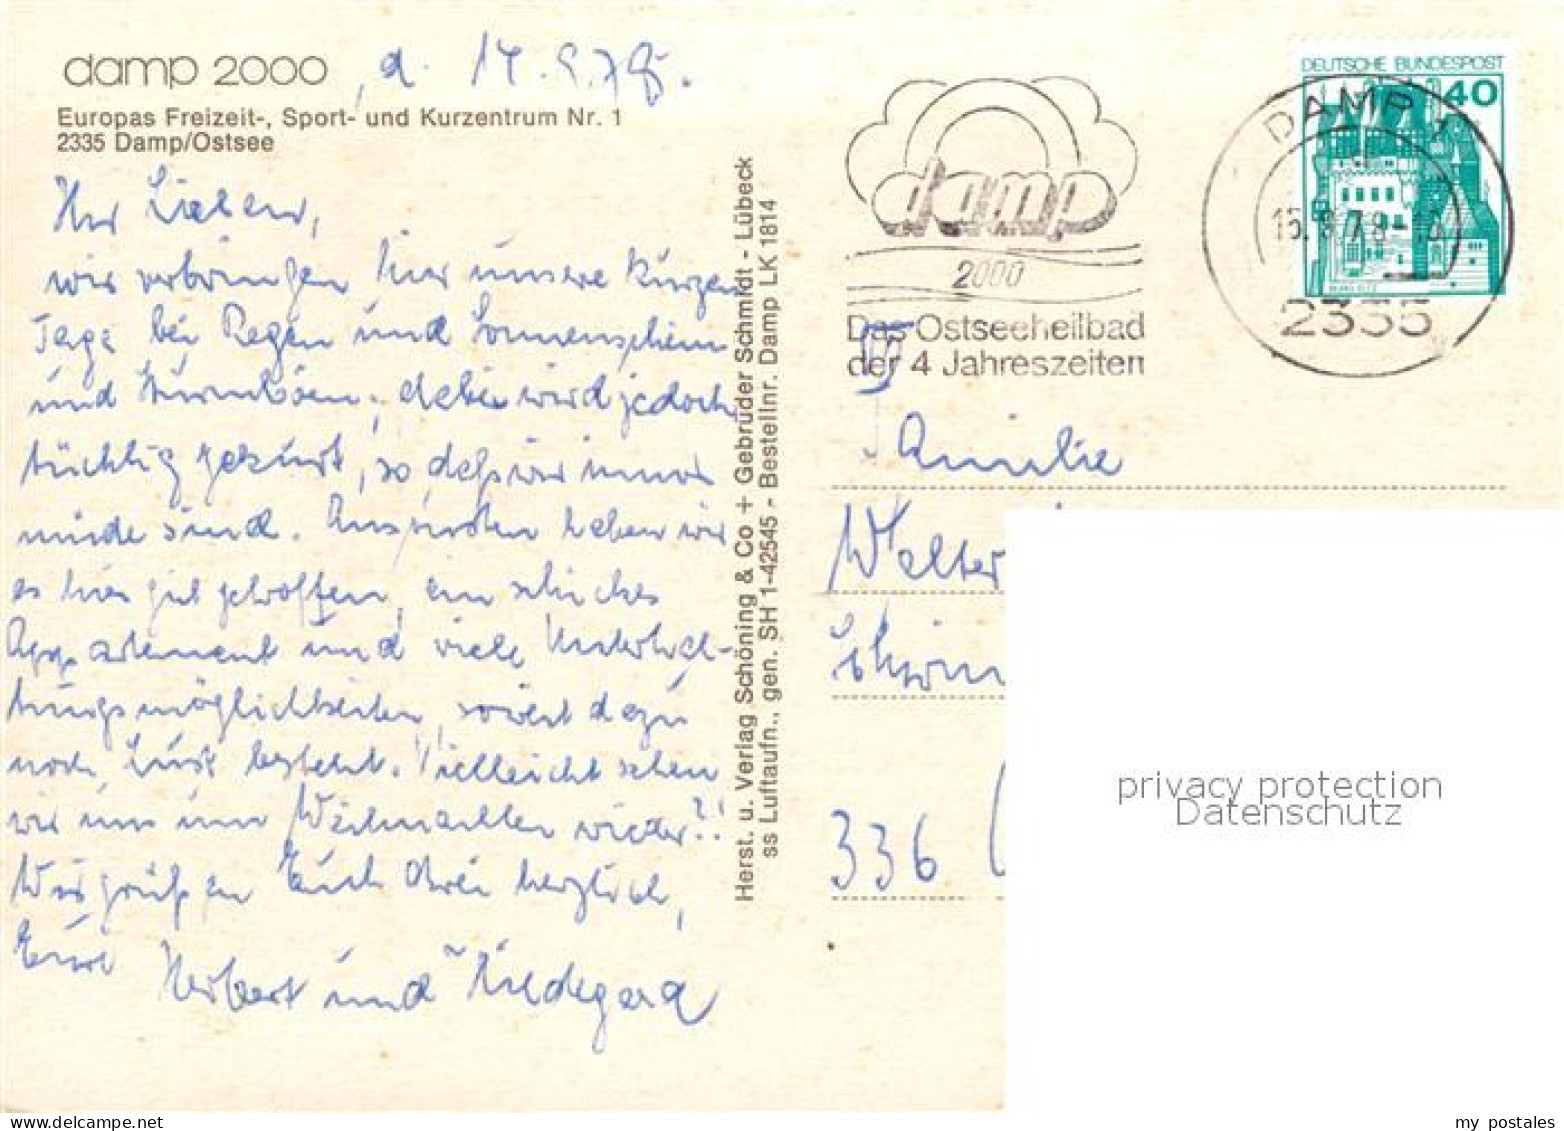 damp 2000, d. 14.9.78.
Europas Freizeit-, Sport- und Kurzentrum Nr. 1
2335 Damp/Ostsee
Ihr Lieben,
wir verbringen hier unsere kurzen
Tage bei Regen und Sonnenschein
und Sturmböen, dabei wird jedoch
tüchtig gekurt, so daß wir immer
müde sind. Ansonsten haben wir
es hier gut getroffen, ein schickes
Appartement und viele Unterhal-
tungsmöglichkeiten, soweit dazu
noch Lust besteht. Vielleicht sehen
wir uns um Weihnachten wieder?!
Wir grüßen Euch drei herzlich,
Eure Herbert und Hildegard
Herst. u. Verlag Schöning & Co + Gebrüder Schmidt - Lübeck
ss Luftaufn., gen. SH 1-42545 - Bestellnr. Damp LK 1814
damp
2000
Das Ostseeheilbad
der 4 Jahreszeiten
DEUTSCHE BUNDESPOST
40
DAMP 1
d
15.9.78-16
2335
Familie
Walter
336
privacy protection
Datenschutz
my postales